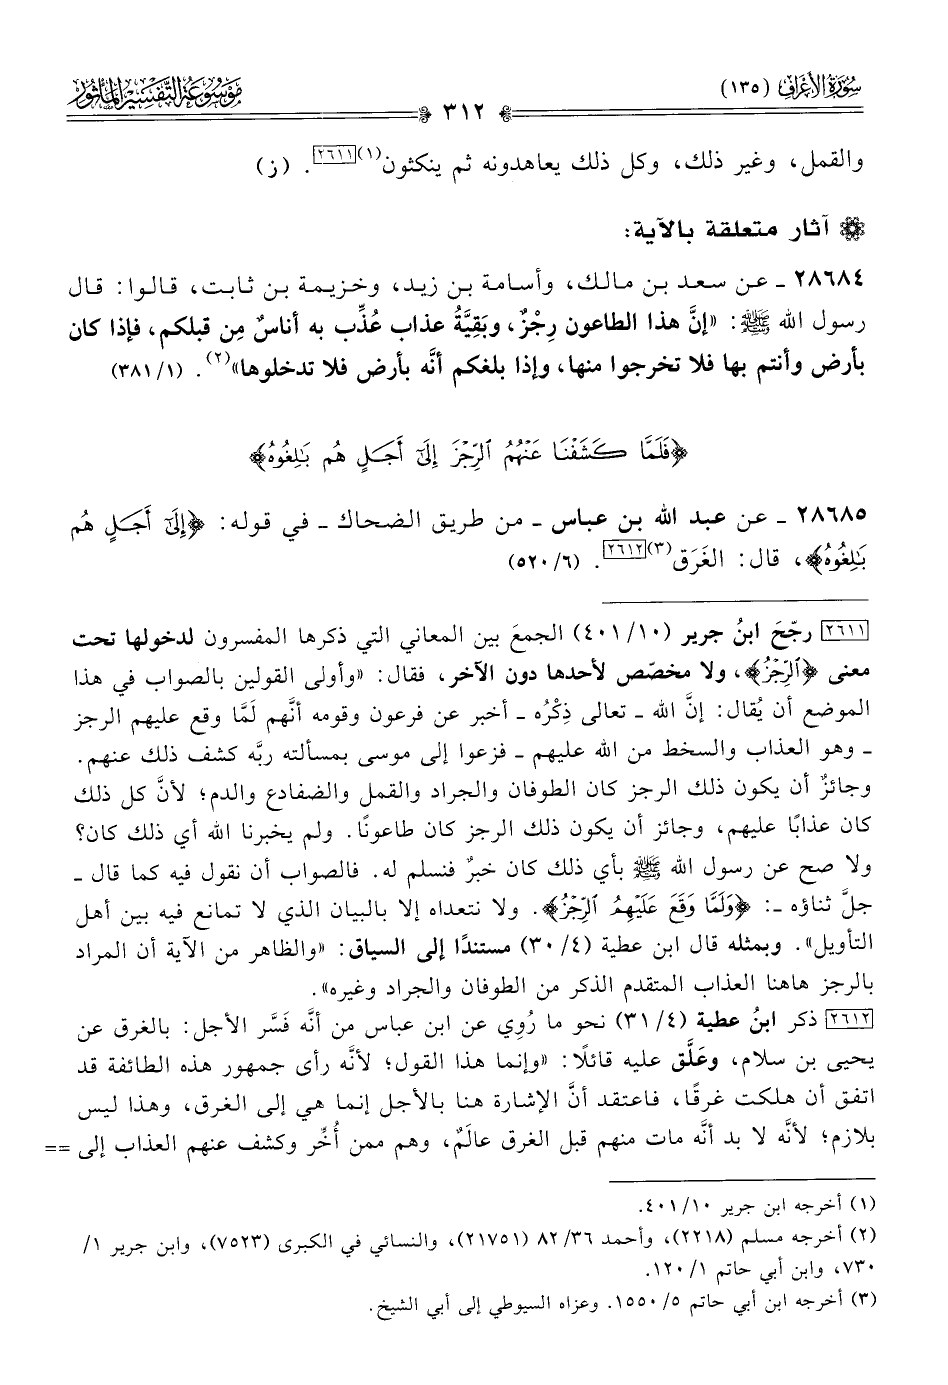 سُورَةُ الأَعْرَافِ (١٣٥)
٣١٢
مَوْسُوعَةُ التَّفْسِيرِ المَأْثُورِ
والقمل، وغير ذلك، وكل ذلك يعاهدونه ثم ينكثون(١)[٢٦١١]. (ز)
آثار متعلقة بالآية:
٢٨٦٨٤ ـ عن سعد بن مالك، وأسامة بن زيد، وخزيمة بن ثابت، قالوا: قال
رسول الله ﷺ: «إنَّ هذا الطاعون رِجْزٌ، وبَقِيَّةُ عذاب عُذِّب به أناسٌ مِن قبلكم، فإذا كان
بأرض وأنتم بها فلا تخرجوا منها، وإذا بلغكم أنَّه بأرض فلا تدخلوها»(٢). (٣٨١/١)
﴿فَلَمَّا كَشَفْنَا عَنْهُمُ ٱلرِّجْزَ إِلَىٰٓ أَجَلٍ هُم بَٰلِغُوهُ﴾
٢٨٦٨٥ ـ عن عبد الله بن عباس ـ من طريق الضحاك ـ في قوله: ﴿إِلَىٰٓ أَجَلٍ هُم
بَٰلِغُوهُ﴾، قال: الغَرَق(٣)[٢٦١٢]. (٥٢٠/٦)
[٢٦١١] رجّحَ ابنُ جرير (٤٠١/١٠) الجمعَ بين المعاني التي ذكرها المفسرون لدخولها تحت
معنى ﴿ٱلرِّجْزُ﴾، ولا مخصّص لأحدها دون الآخر، فقال: «وأولى القولين بالصواب في هذا
الموضع أن يُقال: إنَّ الله ـ تعالى ذِكْرُه ـ أخبر عن فرعون وقومه أنَّهم لَمَّا وقع عليهم الرجز
ـ وهو العذاب والسخط من الله عليهم ـ فزعوا إلى موسى بمسألته ربَّه كشف ذلك عنهم.
وجائزٌ أن يكون ذلك الرجز كان الطوفان والجراد والقمل والضفادع والدم؛ لأنَّ كل ذلك
كان عذابًا عليهم، وجائز أن يكون ذلك الرجز كان طاعونًا. ولم يخبرنا الله أي ذلك كان؟
ولا صح عن رسول الله ﷺ بأي ذلك كان خبرٌ فنسلم له. فالصواب أن نقول فيه كما قال ـ
جلَّ ثناؤه ـ: ﴿وَلَمَّا وَقَعَ عَلَيْهِمُ ٱلرِّجْزُ﴾. ولا نتعداه إلا بالبيان الذي لا تمانع فيه بين أهل
التأويل». وبمثله قال ابن عطية (٣٠/٤) مستندًا إلى السياق: «والظاهر من الآية أن المراد
بالرجز هاهنا العذاب المتقدم الذكر من الطوفان والجراد وغيره».
[٢٦١٢] ذكر ابنُ عطية (٣١/٤) نحو ما رُوِي عن ابن عباس من أنَّه فَسَّر الأجل: بالغرق عن
يحيى بن سلام، وعَلَّق عليه قائلًا: «وإنما هذا القول؛ لأنَّه رأى جمهور هذه الطائفة قد
اتفق أن هلكت غرقًا، فاعتقد أنَّ الإشارة هنا بالأجل إنما هي إلى الغرق، وهذا ليس
بلازم؛ لأنَّه لا بد أنَّه مات منهم قبل الغرق عالَمٌ، وهم ممن أُخِّر وكشف عنهم العذاب إلى ==
(١) أخرجه ابن جرير ٤٠١/١٠.
(٢) أخرجه مسلم (٢٢١٨)، وأحمد ٨٢/٣٦ (٢١٧٥١)، والنسائي في الكبرى (٧٥٢٣)، وابن جرير ١/
٧٣٠، وابن أبي حاتم ١٢٠/١.
(٣) أخرجه ابن أبي حاتم ١٥٥٠/٥. وعزاه السيوطي إلى أبي الشيخ.